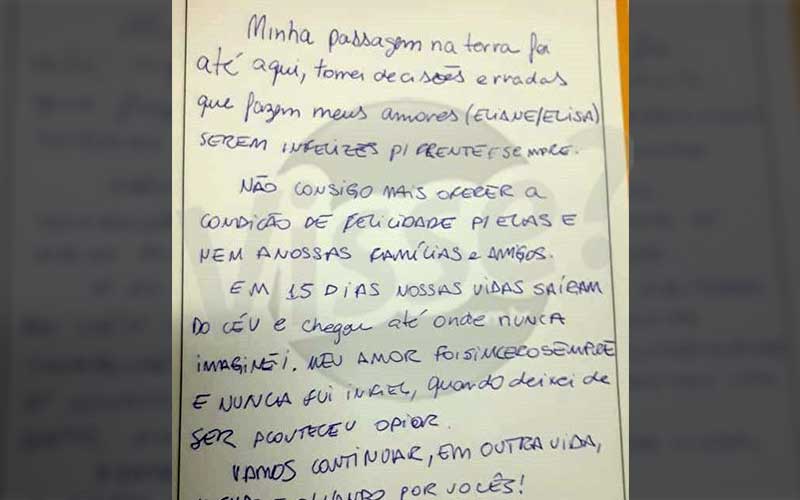 Minha passagem na terra foi
até aqui, tomei decisões erradas
que fazem meus amores (ELIANE/ELISA)
SEREM INFELIZES P/ FRENTE E SEMPRE.
NÃO CONSIGO MAIS OFERER A
CONDIÇÃO DE FELICIDADE P/ ELAS E
NEM A NOSSAS FAMÍLIAS e AMIGOS.
EM 15 DIAS NOSSAS VIDAS SAÍRAM
DO CÉU e chegou até onde NUNCA
IMAGINEI. MEU AMOR FOI SINCERO SEMPRE
E NUNCA FUI INFIEL, quando deixei de
SER ACONTECEU O PIOR.
VAMOS CONTINUAR, EM OUTRA VIDA,
POR VOCÊS!